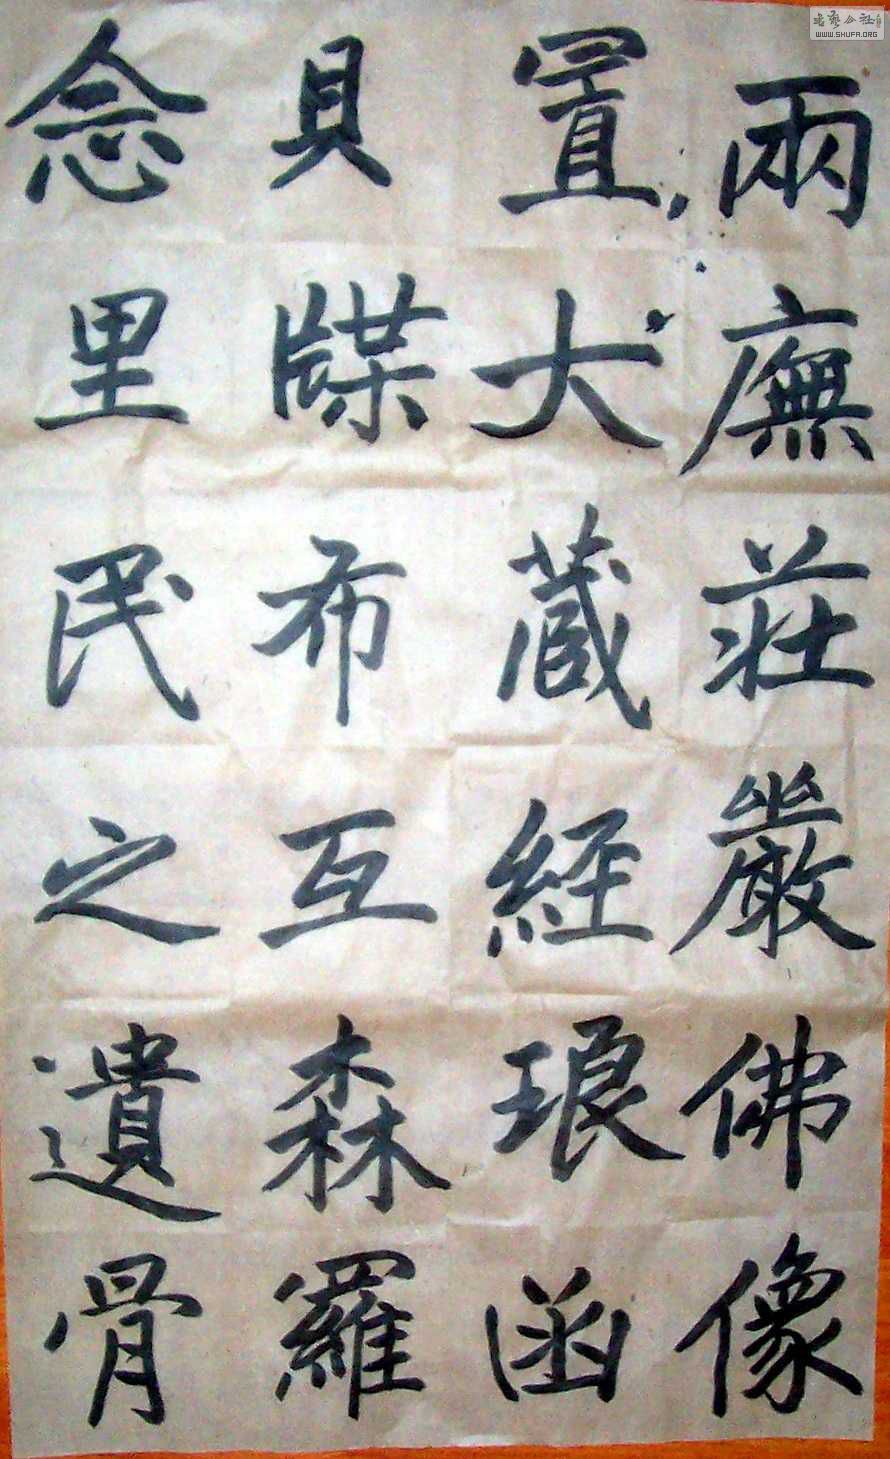 兩廡莊嚴佛像
置大藏經琅函
貝牒布互森羅
念里民之遺骨
WWW.SHUFA.ORG